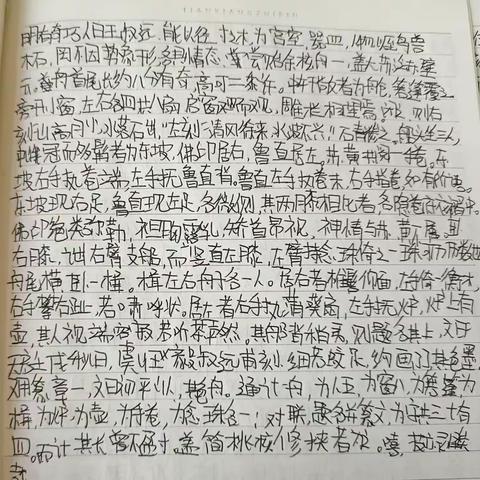 明有奇巧人曰王叔远,能以径寸之木,为宫室、器皿、人物,以至鸟兽
木石,罔不因势象形,各具情态。尝贻余核舟一,盖大苏泛赤壁
云。舟首尾长约八分有奇,高可二黍许。中轩敞者为舱,箬篷覆之
旁开小窗,左右各四,共八扇。启窗而观,雕栏相望焉。闭之,则右
刻"山高月小,水落石出",左刻"清风徐来,水波不兴",石青糁之。船头坐三人,
中峨冠而多髯者为东坡,佛印居右,鲁直居左。苏黄共阅一手卷。东
坡右手执卷端,左手抚鲁直背。鲁直左手执卷末,右手指卷,如有所语。
东坡现右足,鲁直现左足,各微侧,其两膝相比者,各隐卷底衣褶中。
佛印绝类弥勒,袒胸露乳,矫首昂视,神情与苏黄不属。卧
右膝,诎右臂支船,而竖其左膝,左臂挂念珠倚之,珠可历历数也
舟尾横卧一楫。楫左右舟子各一人。居右者椎髻仰面,左手倚一衡木,
右手攀右趾,若啸呼状。居左者右手执蒲葵扇,左手抚炉,炉上有
壶,其人视端容寂,若听茶声然。其船背稍夷,则题名其上,文曰
天启壬戌秋日,虞山王毅叔远甫刻,细若蚊足,钩画了了,其色墨,
又用篆章一,文曰初平山人,其色丹。通计一舟,为人五,为窗八,为箬篷,为
楫,为炉,为壶,为手卷,为念珠各一;对联、题名并篆文,为字共三十有
四。而计其长曾不盈寸。盖简桃核修狭者为之。嘻,技亦灵怪矣
哉